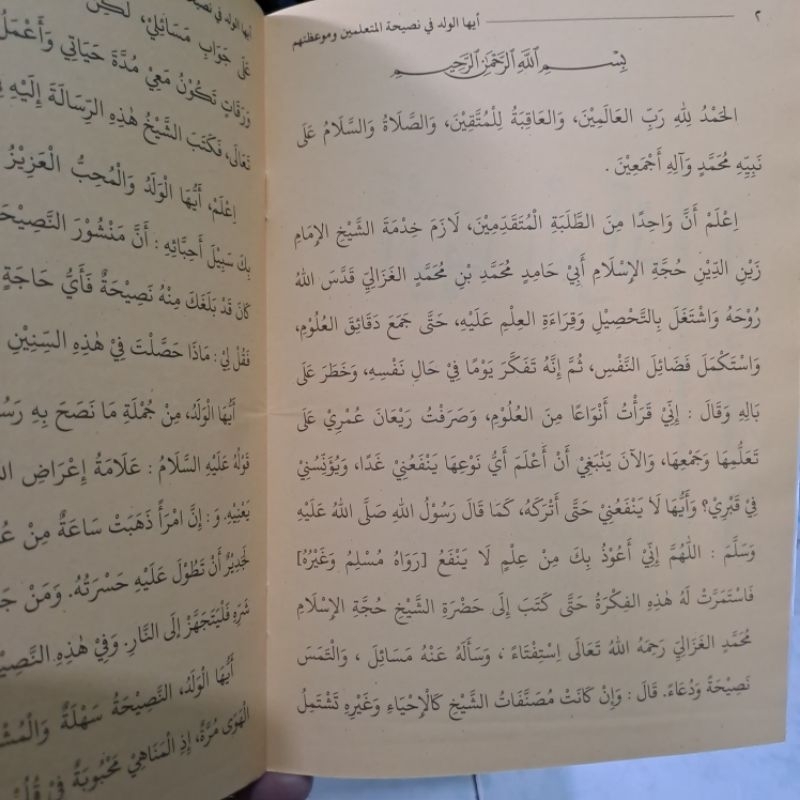 ٢
أيها الولد في نصيحة المتعلمين وموعظتهم
بِسْمِ اللهِ الرَّحْمٰنِ الرَّحِيمِ
الحَمْدُ لِلهِ رَبِّ العَالَمِيْنَ، وَالعَاقِبَةُ لِلْمُتَّقِيْنَ، وَالصَّلَاةُ وَالسَّلَامُ عَلَى
نَبِيِّهِ مُحَمَّدٍ وَآلِهِ أَجْمَعِيْنَ .
اِعْلَمْ أَنَّ وَاحِدًا مِنَ الطَّلَبَةِ الْمُتَقَدِّمِيْنَ، لَازَمَ خِدْمَةَ الشَّيْخِ الإِمَامِ
زَيْنِ الدِّيْنِ حُجَّةِ الإِسْلَامِ أَبِيْ حَامِدٍ مُحَمَّدِ بْنِ مُحَمَّدٍ الغَزَالِيِّ قَدَّسَ اللهُ
رُوْحَهُ وَاشْتَغَلَ بِالتَّحْصِيْلِ وَقِرَاءَةِ العِلْمِ عَلَيْهِ، حَتَّى جَمَعَ دَقَائِقَ العُلُوْمِ،
وَاسْتَكْمَلَ فَضَائِلَ النَّفْسِ، ثُمَّ إِنَّهُ تَفَكَّرَ يَوْمًا فِيْ حَالِ نَفْسِهِ، وَخَطَرَ عَلَى
بَالِهِ وَقَالَ : إِنِّيْ قَرَأْتُ أَنْوَاعًا مِنَ العُلُوْمِ، وَصَرَفْتُ رَيْعَانَ عُمْرِيْ عَلَى
تَعَلُّمِهَا وَجَمْعِهَا، وَالآنَ يَنْبَغِيْ أَنْ أَعْلَمَ أَيُّ نَوْعِهَا يَنْفَعُنِيْ غَدًا، وَيُؤَنِّسُنِيْ
فِيْ قَبْرِيْ؟ وَأَيُّهَا لَا يَنْفَعُنِيْ حَتَّى أَتْرُكَهُ، كَمَا قَالَ رَسُوْلُ اللهِ صَلَّى اللهُ عَلَيْهِ
وَسَلَّمَ : اللّٰهُمَّ إِنِّيْ أَعُوْذُ بِكَ مِنْ عِلْمٍ لَا يَنْفَعُ [رَوَاهُ مُسْلِمُ وَغَيْرُهُ]
فَاسْتَمَرَّتْ لَهُ هٰذِهِ الفِكْرَةُ حَتَّى كَتَبَ إِلَى حَضْرَةِ الشَّيْخِ حُجَّةِ الإِسْلَامِ
مُحَمَّدٍ الغَزَالِيِّ رَحِمَهُ اللهُ تَعَالَى اِسْتِفْتَاءً ، وَسَأَلَهُ عَنْهُ مَسَائِلَ ، وَالْتَمَسَ
نَصِيْحَةً وَدُعَاءً. قَالَ : وَإِنْ كَانَتْ مُصَنَّفَاتُ الشَّيْخِ كَالْإِحْيَاءِ وَغَيْرِهِ تَشْتَمِلُ
أيها الولد في
عَلَى جَوَابِ مَسَائِلِيْ، لٰكِنَّ
وَرَقَاتٍ تَكُوْنُ مَعِيْ مُدَّةَ حَيَاتِي وَأَعْمَلُ
تَعَالَى، فَكَتَبَ الشَّيْخُ هٰذِهِ الرِّسَالَةَ إِلَيْهِ
اِعْلَمْ، أَيُّهَا الْوَلَدُ وَالْمُحِبُّ الْعَزِيْزُ
بِكَ سَبِيْلَ أَحِبَّائِهِ : أَنَّ مَنْشُوْرَ النَّصِيْحَةِ
كَانَ قَدْ بَلَغَكَ مِنْهُ نَصِيْحَةٌ فَأَيُّ حَاجَةٍ
فَقُلْ لِيْ : مَاذَا حَصَّلْتَ فِيْ هٰذِهِ السِّنِيْنَ
أَيُّهَا الْوَلَدُ، مِنْ جُمْلَةِ مَا نَصَحَ بِهِ
قَوْلُهُ عَلَيْهِ السَّلَامُ : عَلَامَةُ إِعْرَاضِ
يَعْنِيْهِ. وَ : إِنَّ امْرَأً ذَهَبَتْ سَاعَةٌ مِنْ
لَجَدِيْرٌ أَنْ تَطُوْلَ عَلَيْهِ حَسْرَتُهُ. وَمَنْ
شَرَهُ فَلْيَتَجَهَّزْ إِلَى النَّارِ. وَفِيْ هٰذِهِ
أَيُّهَا الْوَلَدُ، النَّصِيْحَةُ سَهْلَةٌ
الْهَوَى مُرَّةٌ، إِذِ الْمَنَاهِيْ مَحْبُوْبَةٌ فِيْ